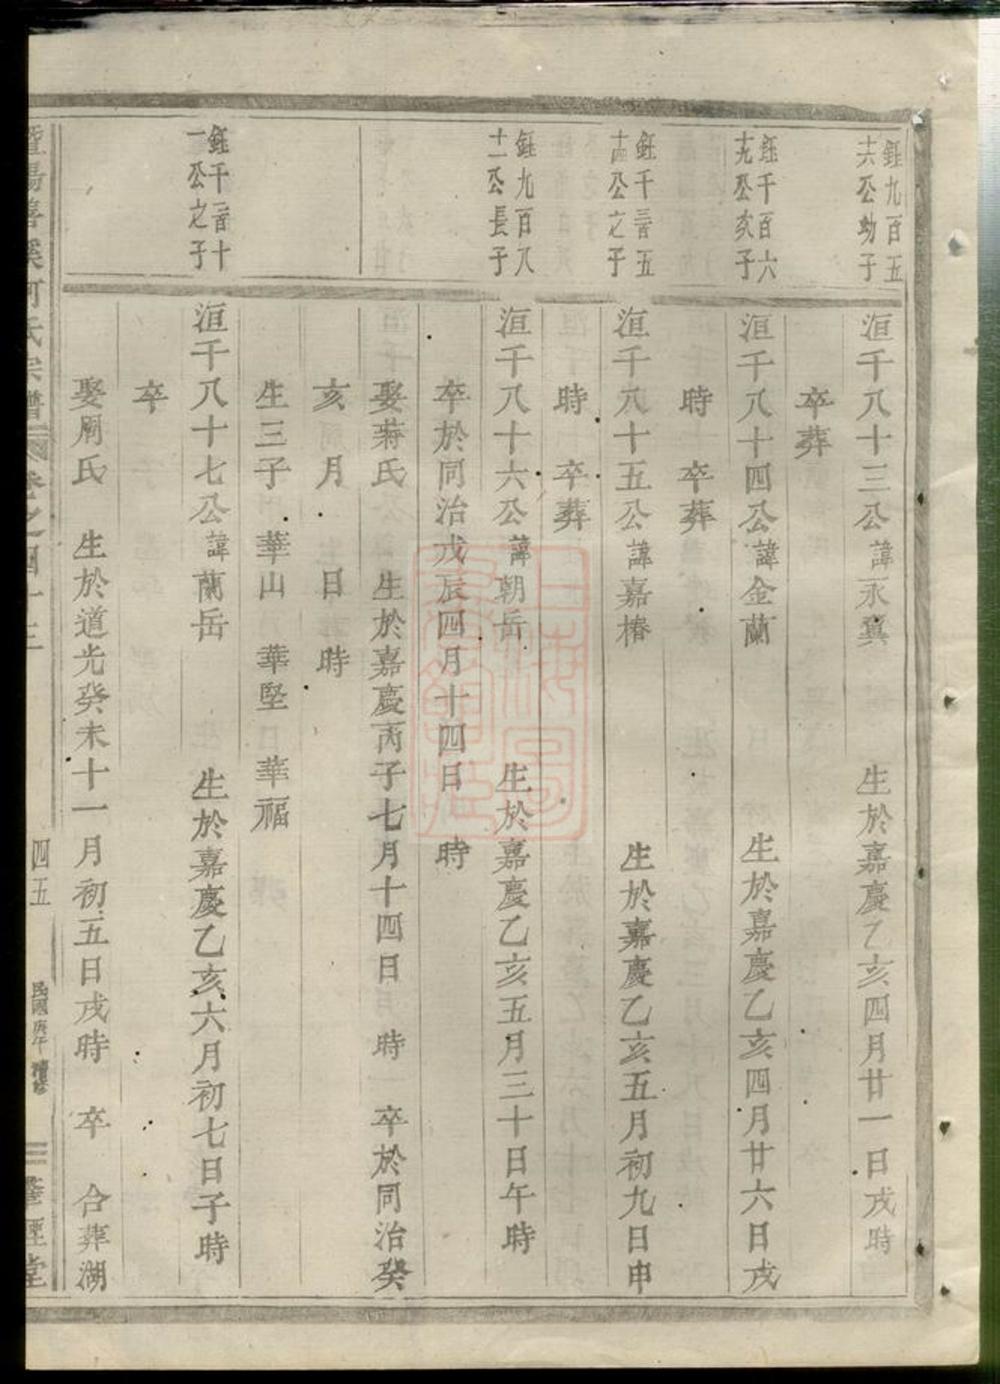 鈺九百五
十六公幼子
洹千八十三公諱永冀 生於嘉慶乙亥四月廿一日戌時
卒葬
鈺千百六
十九公次子
洹千八十四公諱金蘭 生於嘉慶乙亥四月廿六日戌
時 卒葬
鈺千二百五
十四公之子
洹千八十五公諱嘉椿 生於嘉慶乙亥五月初九日申
時 卒葬
鈺九百八
十一公長子
洹千八十六公諱朝岳 生於嘉慶乙亥五月三十日午時
卒於同治戊辰四月十四日 時
娶蔣氏 生於嘉慶丙子七月十四日 時 卒於同治癸
亥 月 日 時
生三子 華山 華堅 華福
鈺千二百十
一公之子
洹千八十七公諱蘭岳 生於嘉慶乙亥六月初七日子時
卒
娶周氏 生於道光癸未十一月初五日戌時 卒 合葬湖
暨陽 溪何氏宗譜 卷之四十三 四五 民國庚午續修 堂